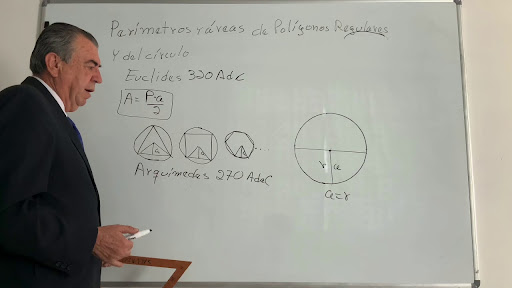 Perímetros y áreas de Polígonos Regulares
Y del círculo
Euclides 320 AdC
A = P·a/2
a a a ...
r a
Arquímedes 270 AdeC
a=r